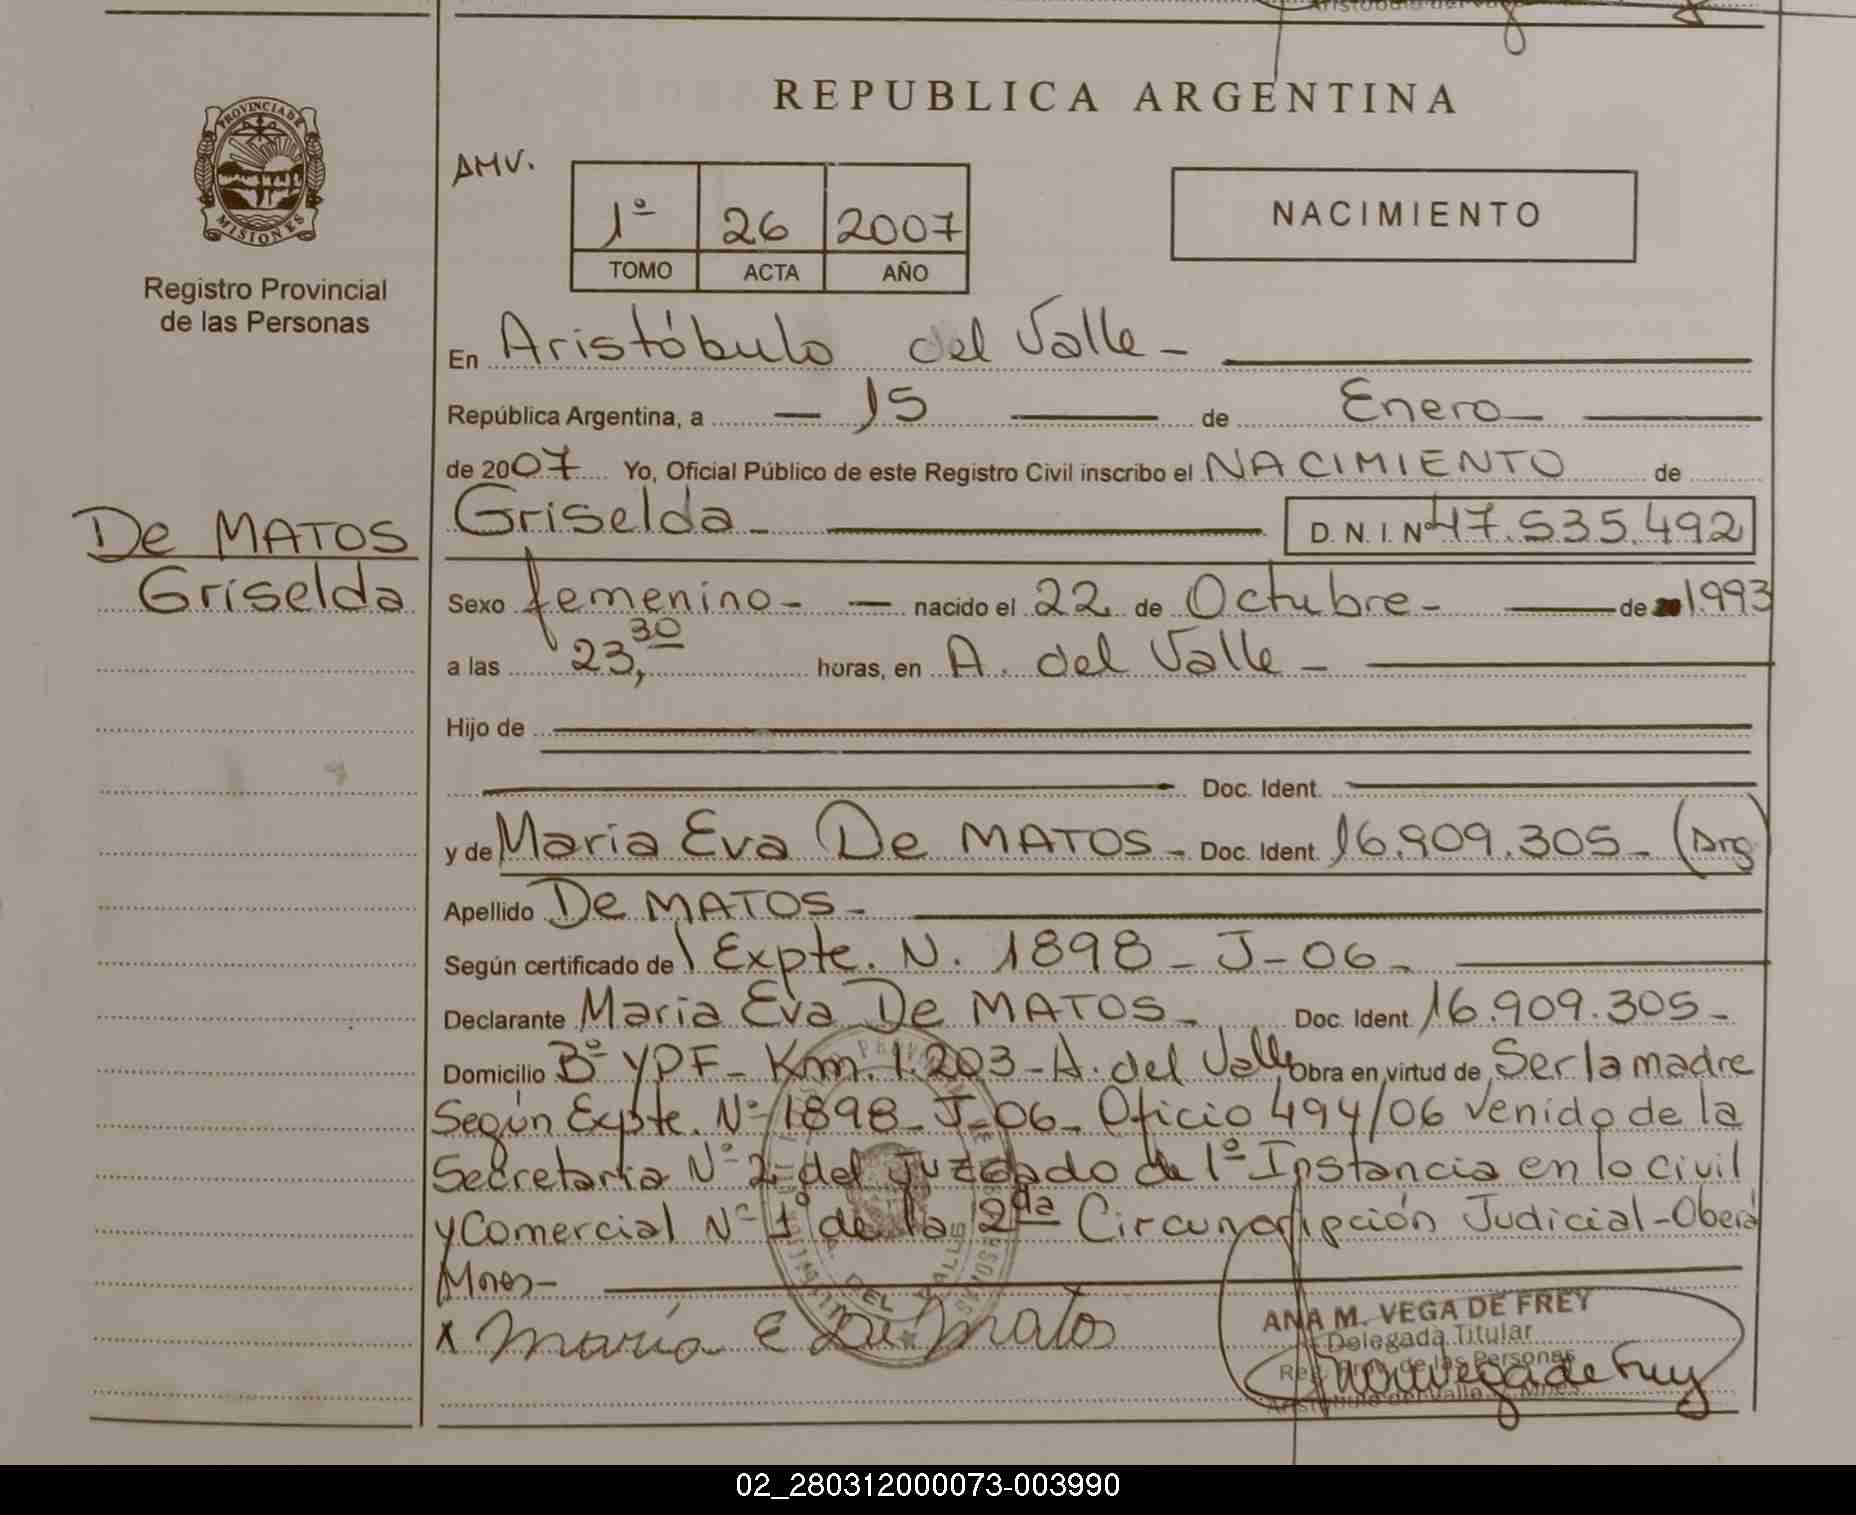 REPUBLICA ARGENTINA
PROVINCIA DE
MISIONES
Registro Provincial
de las Personas
AMV.
1º 26 2007
TOMO ACTA AÑO
NACIMIENTO
En Aristóbulo del Valle-
República Argentina, a — 15 — de Enero —
de 2007 Yo, Oficial Público de este Registro Civil inscribo el NACIMIENTO de
De MATOS
Griselda
Griselda - D.N.I. Nº 47.535.492
Sexo femenino- — nacido el 22 de Octubre- — de 1.993
a las 23,30 horas, en A. del Valle -
Hijo de
Doc. Ident.
y de Maria Eva De MATOS - Doc. Ident 16.909.305 - (Arg)
Apellido De MATOS -
Según certificado de Expte. N. 1898 - J - 06 -
Declarante Maria Eva De MATOS - Doc. Ident. 16.909.305 -
Domicilio Bº YPF - Km. 1.203 - A. del Valle Obra en virtud de Ser la madre
Según Expte. Nº 1898 - J - 06 - Oficio 494/06 venido de la
Secretaria Nº 2 del Juzgado de 1º Instancia en lo civil
y Comercial Nº 1 de la 2da Circunscripción Judicial - Oberá
Mnes -
x María E De Matos
ANA M. VEGA DE FREY
Delegada Titular
Reg. Prov. de las Personas
Aristóbulo del Valle - Mnes.
02_280312000073-003990